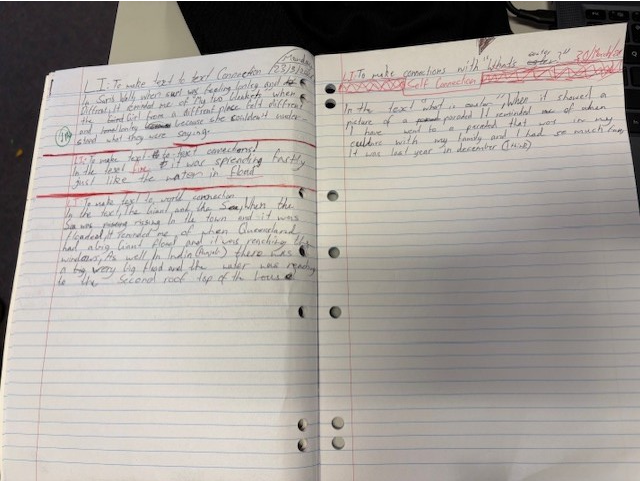 Monday
23/3/2026
LI: To make text to text Connection
In Sara balls when surf was feeling lonley and
Different, it reminded me of My two blankets when
the Girl from a different place felt different
and lonely because she couldn't under-
stand what they were saying.
LI: To make text to text connections
In the text fire it was spreading fastly
just like the water in flood
LI: To make text to world connection
In the text, The Giant and the Sea, When the
Sea was rising in the town and it was
flooded, It reminded me of when Queensland
had a big Giant flood and it was reaching the
windows, As well In India (Punjab) there was
a big very big flood and the water was
to the second roof top of the house
LI: To make connections with "Whats easter?" 30/March/
Self Connection
In the text "what is easter", When it showed a
picture of a paraded It reminded me of when
I have went to a paraded that was in my
culture with my family and I had so much fun,
It was last year in december (I think)